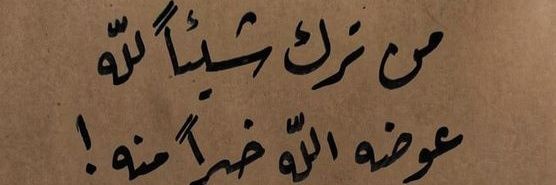 من ترك شيئاً لله
عوضه الله خيراً منه!